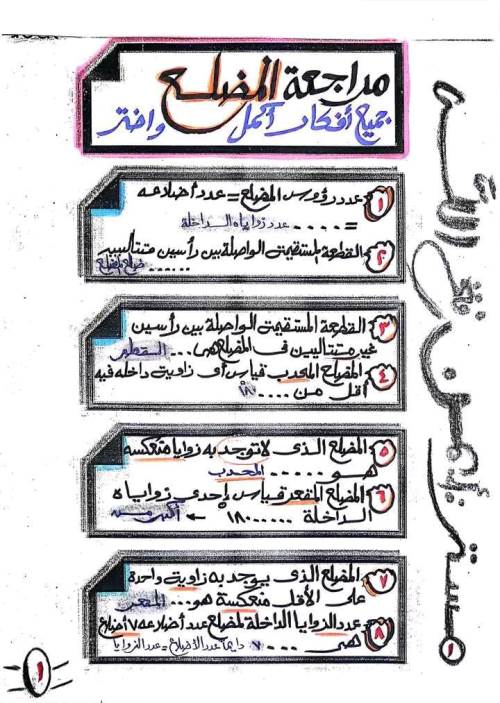 مراجعة المضلع
جميع أفكار أكمل واختر
١ عدد رؤوس المضلع = عدد أضلاعه
= .... عدد زواياه الداخلة
٢ القطعة المستقيمة الواصلة بين رأسين متتاليين
...... ضلع المضلع
٣ القطعة المستقيمة الواصلة بين رأسين
غير متتاليين في المضلع هي ... القطر
٤ المضلع المحدب قياس أي زاوية داخله فيه
أقل من .... ١٨٠
٥ المضلع الذي لا توجد به زوايا منعكسة
هو ..... المحدب
٦ المضلع المقعر قياس إحدى زواياه
الداخلة ...... ١٨٠ ← أكبر من
٧ المضلع الذي يوجد به زاوية واحدة
على الأقل منعكسة هو ... المقعر
٨ عدد الزوايا الداخلة لمضلع عدد أضلاعه ٧ أضلاع
هي ... ٧ دايما عدد الأضلاع = عدد الزوايا
١
١